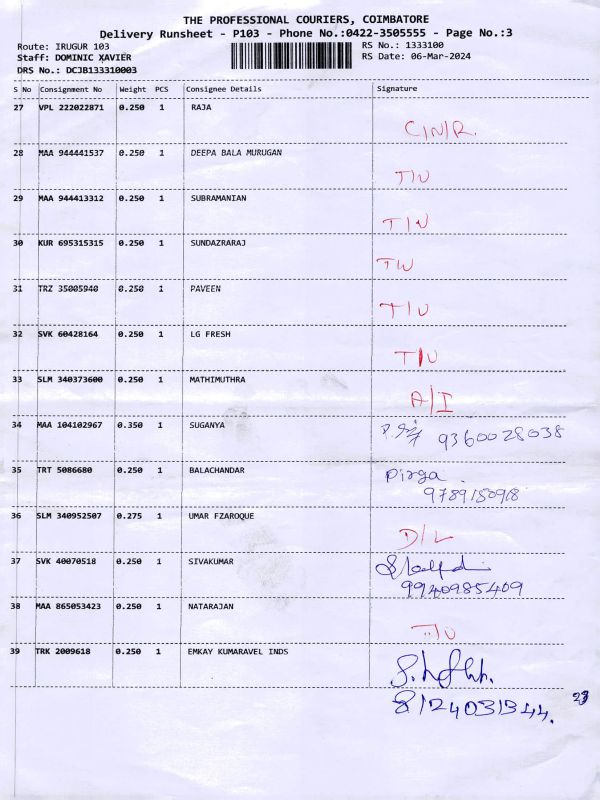 THE PROFESSIONAL COURIERS, COIMBATORE
Delivery Runsheet - P103 - Phone No.:0422-3505555 - Page No.:3
Route: IRUGUR 103 RS No.: 1333100
Staff: DOMINIC XAVIER RS Date: 06-Mar-2024
DRS No.: DCJB133310003
S No Consignment No Weight PCS Consignee Details Signature
27 VPL 222022871 0.250 1 RAJA
C/N/R.
28 MAA 944441537 0.250 1 DEEPA BALA MURUGAN
T/U
29 MAA 944413312 0.250 1 SUBRAMANIAN
T/U
30 KUR 695315315 0.250 1 SUNDAZRARAJ
T/U
31 TRZ 35005940 0.250 1 PAVEEN
T/U
32 SVK 60428164 0.250 1 LG FRESH
T/U
33 SLM 340373600 0.250 1 MATHIMUTHRA
A/I
34 MAA 104102967 0.350 1 SUGANYA
9360028038
35 TRT 5086680 0.250 1 BALACHANDAR
Pirga
9789150918
36 SLM 340952507 0.275 1 UMAR FZAROQUE
D/L
37 SVK 40070518 0.250 1 SIVAKUMAR
9940985409
38 MAA 865053423 0.250 1 NATARAJAN
T/U
39 TRK 2009618 0.250 1 EMKAY KUMARAVEL INDS
8124031344.
23